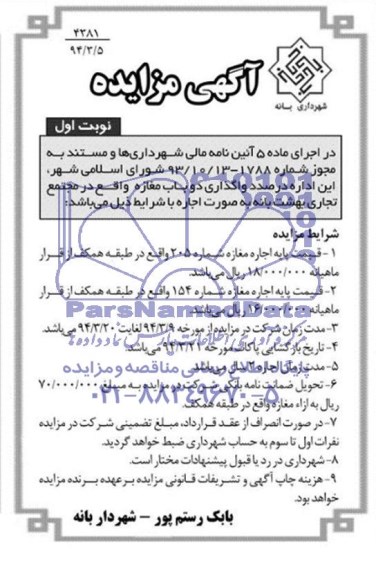 ۴۳۸۱
۹۴/۳/۵
شهرداری بانه
آگهی مزایده
نوبت اول
در اجرای ماده ۵ آئین نامه مالی شهرداری‌ها و مستند به
مجوز شماره ۱۷۸۸-۹۳/۱۰/۱۳ شورای اسلامی شهر،
این اداره در صدد واگذاری دو باب مغازه واقع در مجتمع
تجاری بهشت بانه به صورت اجاره با شرایط ذیل می‌باشد:
شرایط مزایده
۱- قیمت پایه اجاره مغازه شماره ۲۰۵ واقع در طبقه همکف از قرار
ماهیانه ۱۸/۰۰۰/۰۰۰ ریال می‌باشد.
۲- قیمت پایه اجاره مغازه شماره ۱۵۴ واقع در طبقه همکف از قرار
ماهیانه ۱۶/۰۰۰/۰۰۰ ریال می‌باشد.
ParsNamadData
۳- مدت زمان شرکت در مزایده از مورخه ۹۴/۳/۹ لغایت ۹۴/۳/۲۰ می‌باشد.
۴- تاریخ بازگشایی پاکات مورخه ۹۴/۳/۲۱ می‌باشد.
۵- مدت زمان اجاره می‌باشد.
مناقصه و مزایده
۶- تحویل ضمانت نامه بانکی شرکت در مزایده به مبلغ ۷۰/۰۰۰/۰۰۰
۰۲۱-۸۸۳۴۹۶۷۰-۵
ریال به ازاء مغازه واقع در طبقه همکف.
۷- در صورت انصراف از عقد قرارداد، مبلغ تضمینی شرکت در مزایده
نفرات اول تا سوم به حساب شهرداری ضبط خواهد گردید.
۸- شهرداری در رد یا قبول پیشنهادات مختار است.
۹- هزینه چاپ آگهی و تشریفات قانونی مزایده بر عهده برنده مزایده
خواهد بود.
بابک رستم پور - شهردار بانه